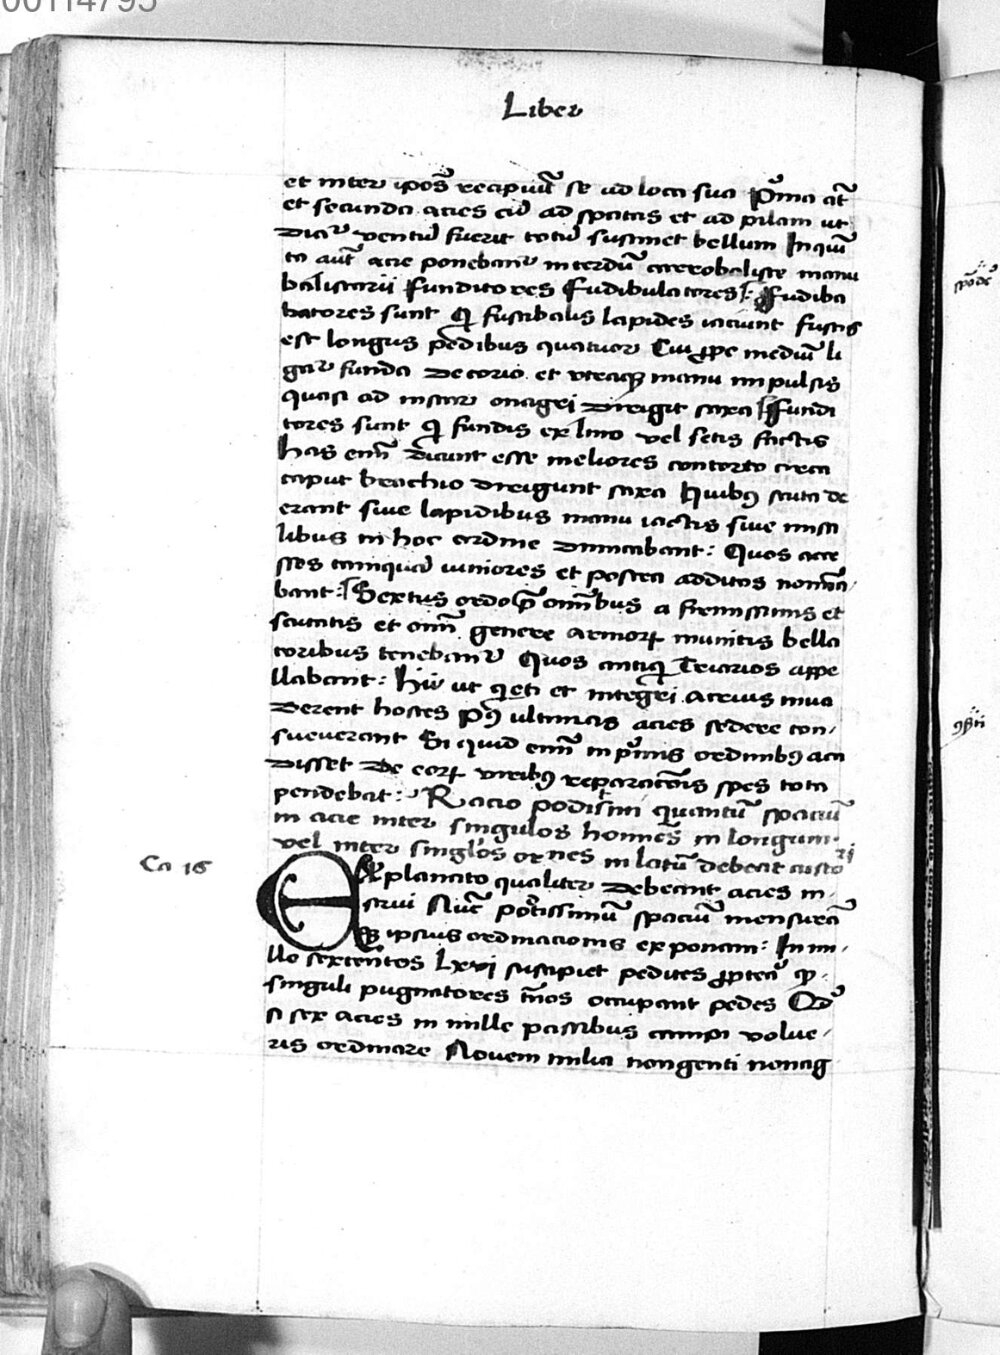 00114795
Liber
et inter ipos̄ recipiūt se ad loca sua Pͥma aūt
et secunda acies cū ad spatas et ad pilam ut
dicᷓ ventū fuerit totū sustinet bellum In quī
ta aūt acie ponebanᷓ interdū carrobaliste manu
balistarii funditores Fudibulatores: Fudiba
latores sunt qͥ fustibalis lapides iaciunt fustis
est longus pedibus quatuor Cui ꝓpe mediū li
gaᷓ funda de corio et utraqꝫ manu impulsis
quasi ad instar onagri dirigit saxa Fundi
tores sunt qͥ fundis ex lino vel setis factis
has enī dicunt esse meliores contorto circa
caput brachio dirigunt saxa Quibꝰ scuta de
erant sive lapidibus manu iactis sive missi
libus in hoc ordine dimicabant: Quos acce
ssos tamquā iuniores et postea additos nomīa/
bant: Sextus ordo p̄ om̄ibus a firmissimis et
scutatis et om̄i genere armoꝝ munitis bella
toribus tenebanᷓ Quos antiqͥ Triarios appe
llabant: Hii ut qͥeti et integri acrius inva
derent hostes pꝰ ultimas acies sedere con/
sueverant Si quid enī in pͥmis ordinibꝰ acci
disset de eoꝝ viribꝰ reparatiōis spes tota
pendebat: Racio podismi quantū spaciū
in acie inter singulos homīes in longum
vel inter singlos ordines in latū debeat custo
ri
Ca 16
Explanato qualiter debeant acies in/
strui Nūc potissimū spaciū mensurā
qꝫ ipsius ordinacionis exponam: In mi/
lle sexcentos Lxvi suscipiet pedites ꝓptea qͥ
singuli pugnatores t̄nos occupant pedes Qd̄
si sex acies in mille passibus campi volue/
ris ordinare Novem milia nongenti nonag